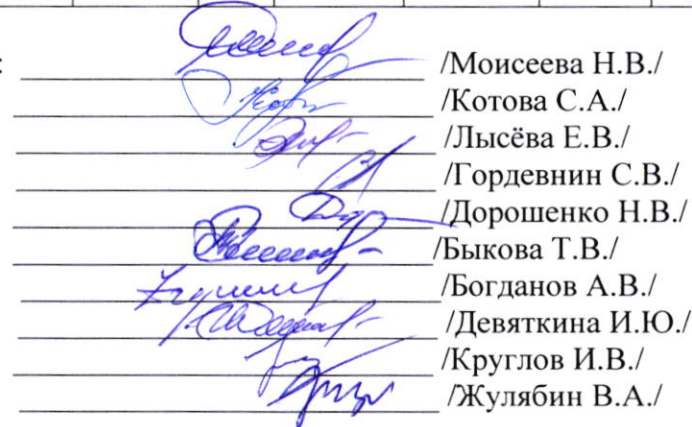 : /Моисеева Н.В./
/Котова С.А./
/Лысёва Е.В./
/Гордевнин С.В./
/Дорошенко Н.В./
/Быкова Т.В./
/Богданов А.В./
/Девяткина И.Ю./
/Круглов И.В./
/Жулябин В.А./